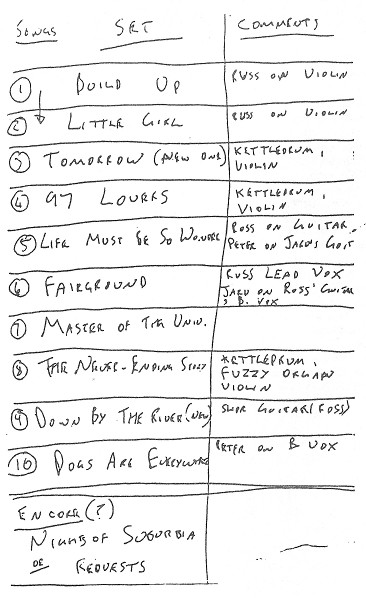 SONGS SET COMMENTS
① BUILD UP RUSS ON VIOLIN
② LITTLE GIRL RUSS ON VIOLIN
③ TOMORROW (NEW ONE) KETTLEDRUM,
VIOLIN
④ 97 LOVERS KETTLEDRUM,
VIOLIN
⑤ LIFE MUST BE SO WONDER RUSS ON GUITAR
PETER ON JARV'S GUIT
⑥ FAIRGROUND RUSS LEAD VOX
JARV ON RUSS' GUITAR
& B. VOX
⑦ MASTER OF THE UNIV.
⑧ THE NEVER-ENDING STORY KETTLEDRUM,
FUZZY ORGAN
VIOLIN
⑨ DOWN BY THE RIVER (NEW) GUITAR (RUSS)
⑩ DOGS ARE EVERYWHERE PETER ON B VOX
ENCORE (?)
NIGHTS OF SUBURBIA
OR REQUESTS